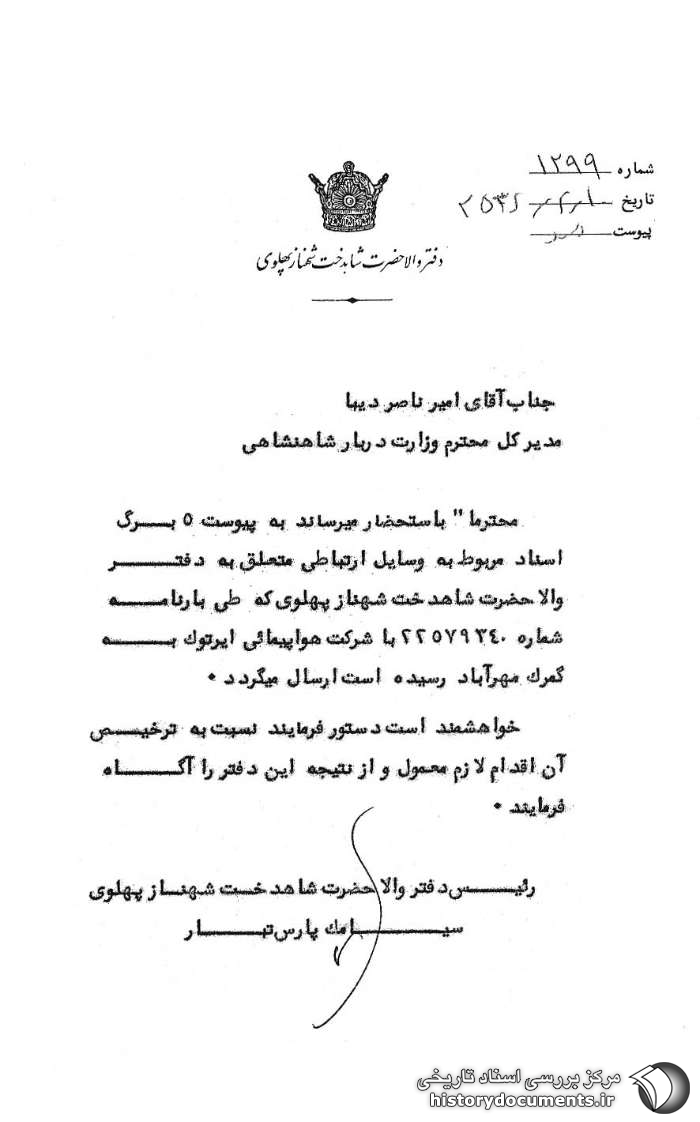 شماره ۱۲۹۹
تاریخ
پیوست
دفتر والاحضرت شاهدخت شهناز پهلوی
جناب آقای امیر ناصر دیبا
مدیر کل محترم وزارت دربار شاهنشاهی
محترما" باستحضار میرساند به پیوست ۵ برگ
اسناد مربوط به وسایل ارتباطی متعلق به دفتر
والاحضرت شاهدخت شهناز پهلوی که طی بارنامه
شماره ۲۲۵۷۹۳۴۰ با شرکت هواپیمائی ایرتوک به
گمرک مهرآباد رسیده است ارسال میگردد ۰
خواهشمند است دستور فرمایند نسبت به ترخیص
آن اقدام لازم معمول و از نتیجه این دفتر را آگاه
فرمایند ۰
رئیس دفتر والاحضرت شاهدخت شهناز پهلوی
سیامک پارس‌تبار
مرکز بررسی اسناد تاریخی
historydocuments.ir